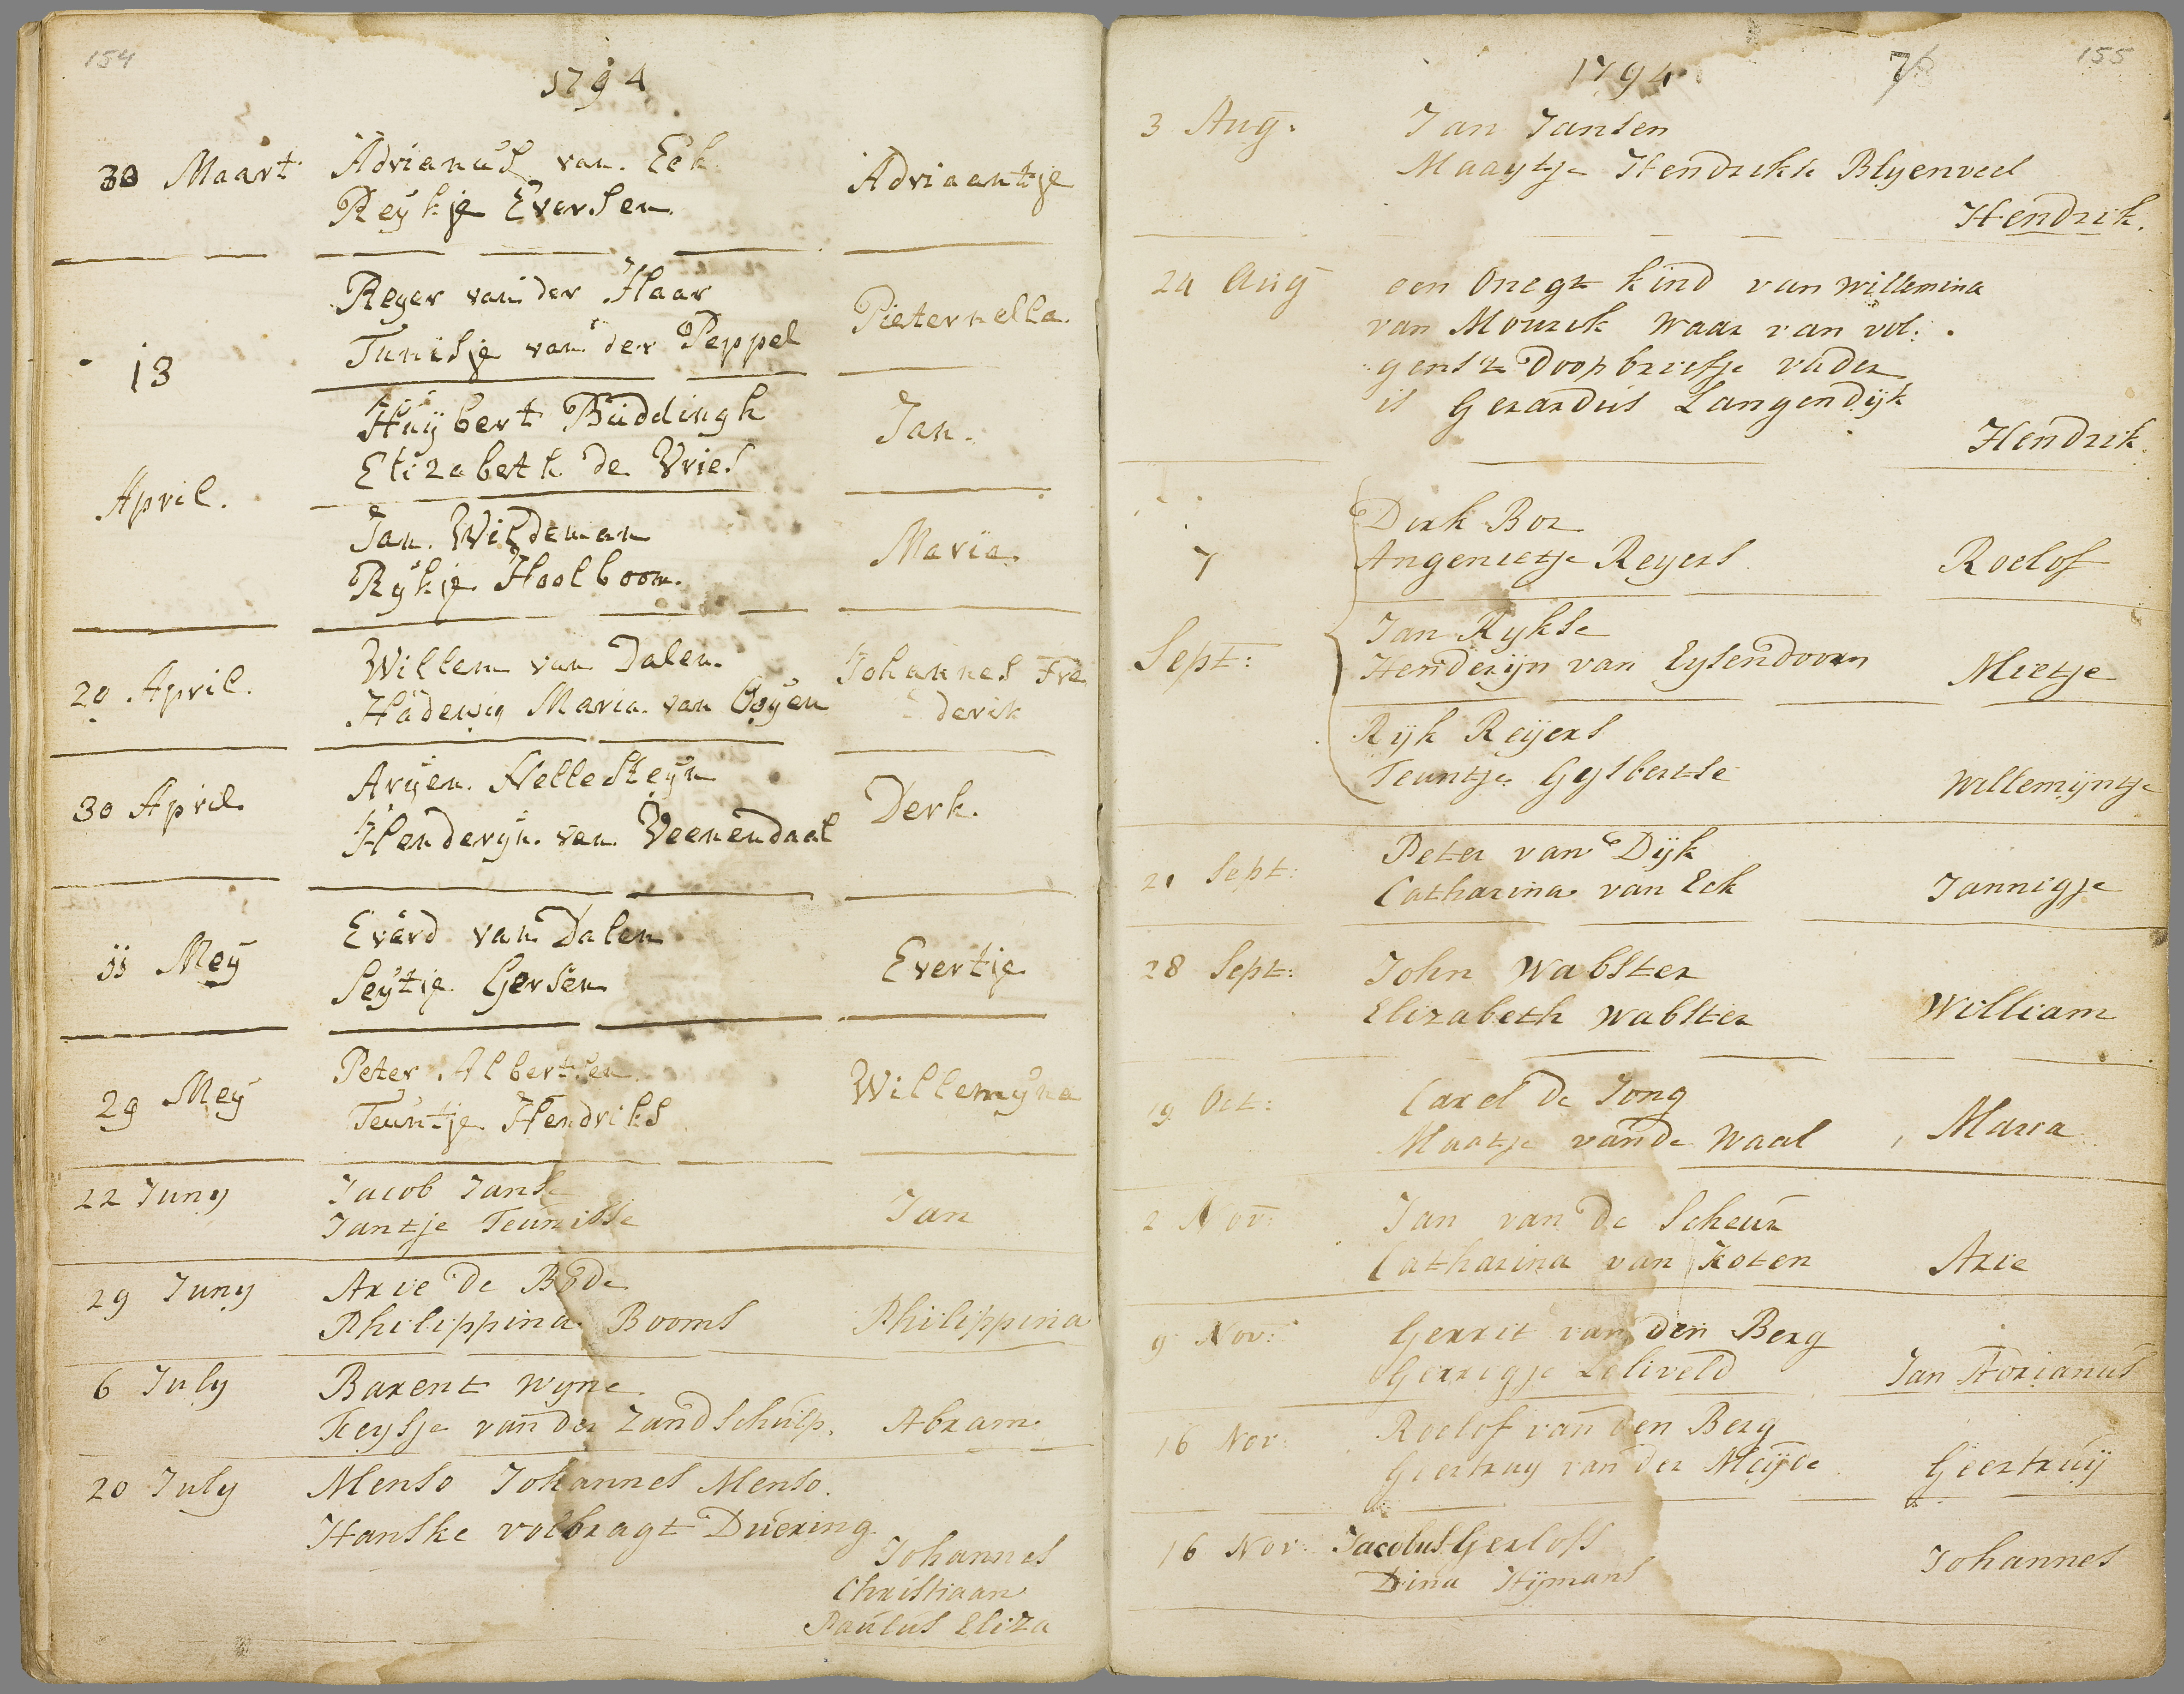 154
1794
30 Maart Adrianus van Eck Adriaantje
Reykje Eversen
Reyer van der Haar Pieternella
Tunisje van der Peppel
13
Huybert Buddingh Jan.
Elizabeth de Vries
April.
Jan. Wildeman Maria.
Rykje Hoolboom.
Willem van Dalen. Johannes Fre
20 April. Hadewig Maria van Ooyen derik
Aryen. Hellesteyn
30 April Derk.
Henderyn. van Veenendaal
Everd van Dalen
11 Mey Evertje
Seytje Gersen
Peter Albertsen Willemyna
29 Mey
Teuntje Hendriks
22 Juny Jacob Janse Jan
Jantje Teunisse
29 Juny Arie de Bode
Philippina Booms Philippina
6 July Barent Wyne
Feysje van der Zandschulp. Abram
20 July Menso Johannes Menso.
Hanske volbragt Duering
Johannes
Christiaan
Paulus Eliza
155
1794 76
3 Aug. Jan Jansen
Maaytje Hendrikse Blyenveel
Hendrik.
24 Aug een Onegt kind van Willemina
van Mourik waar van vol:
genst Doopbriefje vader
is Gerardus Langendijk
Hendrik
Dirk Bor
7 Angenietje Reyers Roelof
Jan Rykse
Sept: Henderijn van Eysendoorn Mietje
Rijk Reijers
Teuntje Gysbertse Willemijntje
Peter van Dijk
21 Sept: Catharina van Eck Jannigje
28 Sept: John Wabster
Elizabeth Wabster William
19 Oct: Carel de Jong
Maatje van de Waal Maria
2 Nov: Jan van de Scheur
Catharina van Koten Arie
9 Nov: Gerrit van den Berg
Gerrigje Leliveld Jan Adrianus
16 Nov: Roelof van den Berg
Geertruy van der Meijde Geertruij
16 Nov: Jacobus Gerloff
Dina Hijmans Johannes